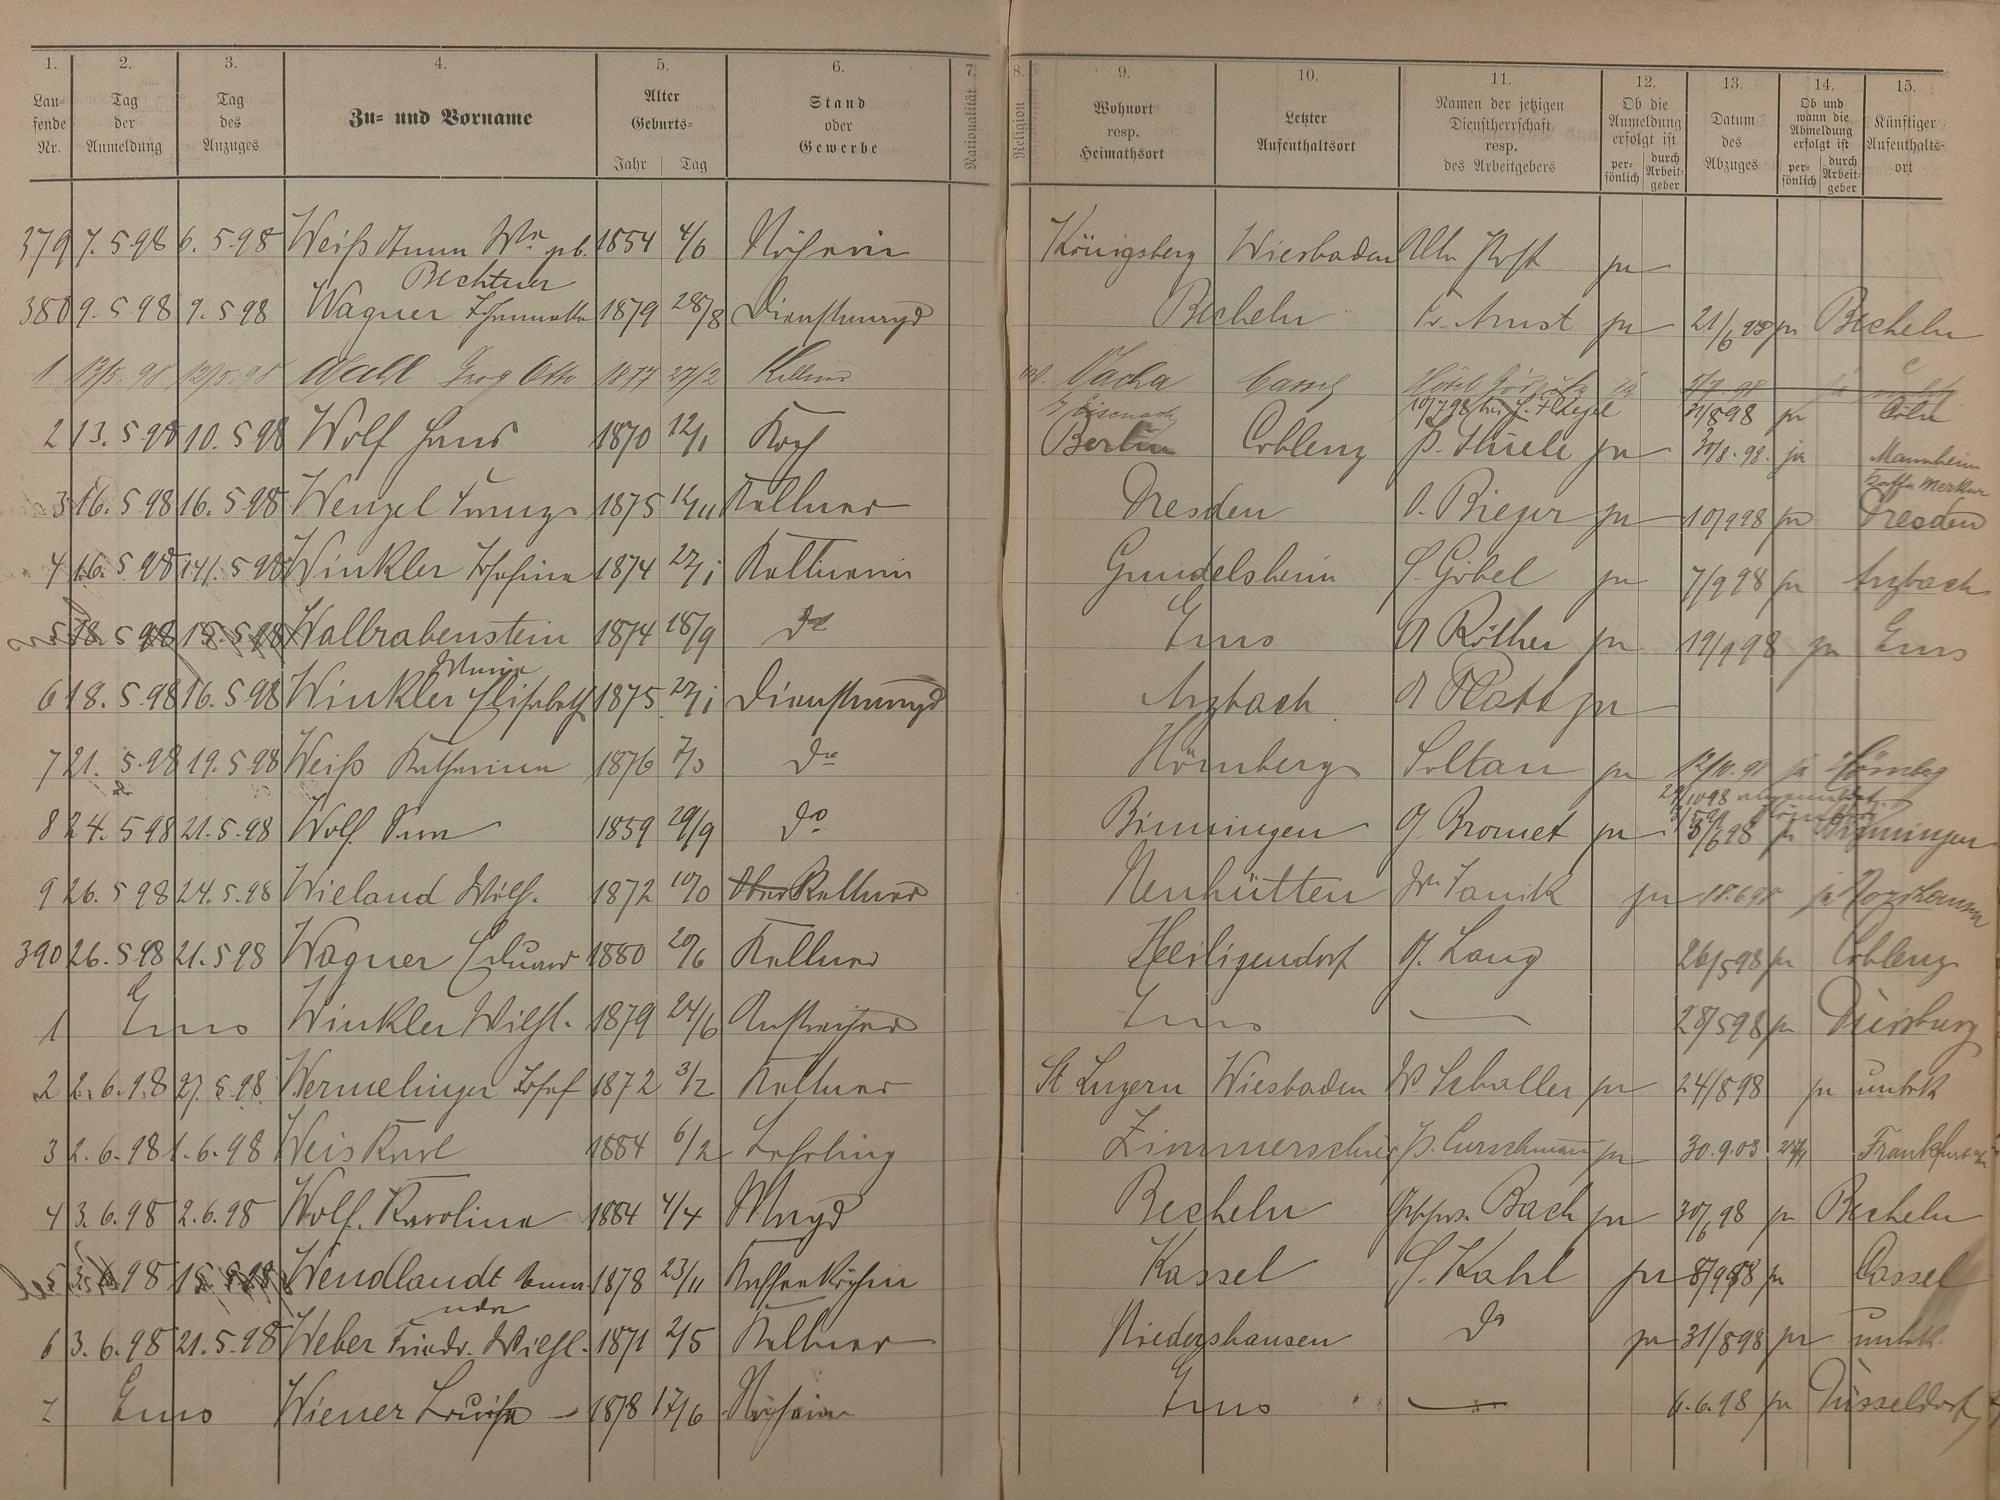 1. 2. 3. 4. 5. 6. 7. 8. 9. 10. 11. 12. 13. 14. 15.
Lau-
fende
Nr.
Tag
der
Anmeldung
Tag
des
Anzuges
Zu- und Vorname
Alter
Geburts-
Jahr Tag
Stand
oder
Gewerbe
Nationalität
Religion
Wohnort
resp.
Heimathsort
Letzter
Aufenthaltsort
Namen der jetzigen
Dienstherrschaft
resp.
des Arbeitgebers
Ob die
Anmeldung
erfolgt ist
per-
sönlich
durch
Arbeit-
geber
Datum
des
Abzuges
Ob und
wann die
Abmeldung
erfolgt ist
per-
sönlich
durch
Arbeit-
geber
Künftiger
Aufenthalts-
ort
379 7. 5 98 6. 5. 98 Weiß Anna Wwe gb. 1854 4/6 Köchin Königsberg Wiesbaden ja
Bechtner
380 9. 5 98 9. 5 98 Wagner 1879 28/8 Dienstmagd Becheln ja 21/6 98 ja Becheln
1 13/5. 98 12/5. 98 Wahl Georg Otto 1877 27/2 Kellner Vacha Cassel
Eisenach 31/8 98 ja Cöln
2 13. 5 98 10. 5 98 Wolf Hans 1870 12/1 Koch Berlin Coblenz P. Thiele ja 30/8. 98. ja Mannheim
3 16. 5 98 16. 5 98 Wenzel Franz 1875 12/11 Kellner Dresden O. Bieger ja 10/9 98 ja Dresden
4 16. 5 98 14. 5 98 Winkler Josefina 1874 27/1 Kellnerin Gundelsheim S. Göbel ja 7/9 98 ja Arzbach
5 18. 5 98 18. 5 98 Wallrabenstein 1874 18/9 do Ems A Röther ja 19/9 98 ja Ems
Maria
6 18. 5. 98 16. 5 98 Winkler Elisabeth 1875 27/1 Dienstmagd Arzbach A Platt ja
7 21. 5. 98 19. 5 98 Weiß Katharina 1876 7/3 do Hömberg Soltau ja 12/10. 98 ja Hömberg
8 24. 5 98 21. 5. 98 Wolf Anna 1859 29/9 do Binningen J. Bromet ja 3/6 98 ja Binningen
9 26. 5 98 24. 5. 98 Wieland Wilh. 1872 Ober Kellner Neuhütten ja 18. 6 98 ja
390 26. 5. 98 21. 5 98 Wagner Eduard 1880 20/6 Kellner Heiligendorf J. Lang 26/5 98 ja Coblenz
1 Ems Winkler Wilh. 1879 24/6 Anstreicher Ems — 28/5 98 ja Duisburg
2 2. 6. 98 27. 5. 98 Wermelinger Josef 1872 3/2 Kellner St Luzern Wiesbaden W. Schaller ja 24/8 98 ja unbek
3 2. 6. 98 1. 6. 98 Weis Karl 1884 6/2 Lehrling Zimmerschied P. Curschmann ja 30. 9. 03 Frankfurt
4 3. 6. 98 2. 6. 98 Wolf. Karolina 1884 4/4 Magd Becheln Bach ja 30/6 98 ja Becheln
5 3. 6 98 15. 5 98 Wendlandt Anna 1878 23/11 Kaffeeköchin Kassel S. Kahl ja 8/9 98 ja Cassel
6 3. 6. 98 21. 5. 98 Weber Friedr. Wilh. 1871 2/5 Kellner Niedershausen do ja 31/8 98 ja unbek.
7 Ems Wiener Louise 1878 17/6 Köchin Ems — 6. 6. 98 ja Düsseldorf